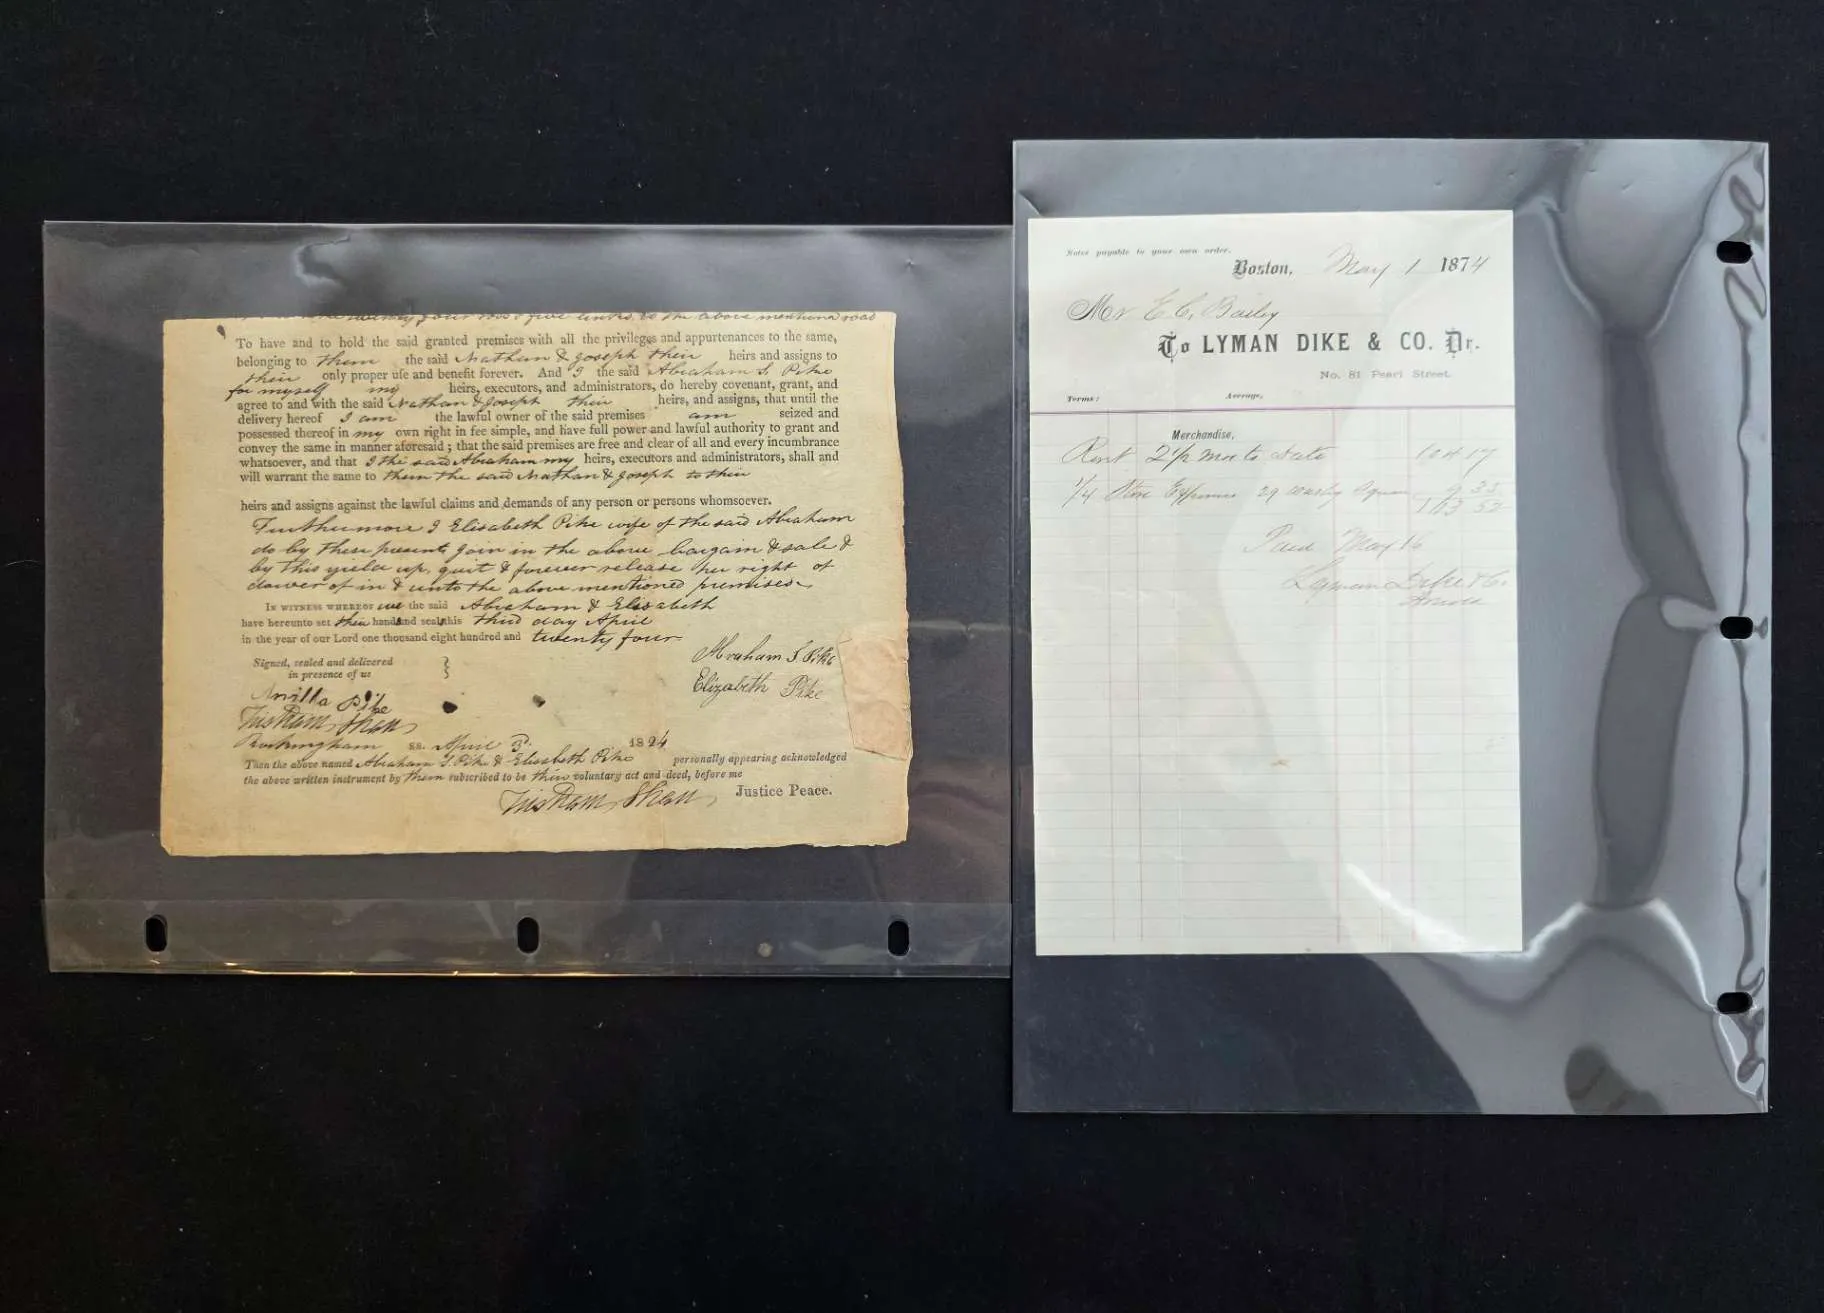 twenty four rods & five links to the above mentiond road
To have and to hold the said granted premises with all the privileges and appurtenances to the same,
belonging to them the said Nathan & Joseph their heirs and assigns to
their only proper use and benefit forever. And I the said Abraham S Pike
for myself my heirs, executors, and administrators, do hereby covenant, grant, and
agree to and with the said Nathan & Joseph their heirs, and assigns, that until the
delivery hereof I am the lawful owner of the said premises am seized and
possessed thereof in my own right in fee simple, and have full power and lawful authority to grant and
convey the same in manner aforesaid; that the said premises are free and clear of all and every incumbrance
whatsoever, and that I the said Abraham my heirs, executors and administrators, shall and
will warrant the same to them the said Nathan & Joseph to their
heirs and assigns against the lawful claims and demands of any person or persons whomsoever.
Furthermore I Elisabeth Pike wife of the said Abraham
do by these presents join in the above bargain & sale &
by this yield up, quit & forever release her right of
dower of in & unto the above mentioned premises
In witness whereof we the said Abraham & Elisabeth
have hereunto set their hand and seal this third day April
in the year of our Lord one thousand eight hundred and twenty four
Signed, sealed and delivered
in presence of us
Abraham S Pike
Elizabeth Pike
Pike
Tristram Shaw
Rockingham ss. April 3 1824
Then the above named Abraham S. Pike & Elisabeth Pike personally appearing acknowledged
the above written instrument by them subscribed to be their voluntary act and deed, before me
Tristram Shaw Justice Peace.
Notes payable to your own order.
Boston, May 1 1874
Mr E C. Bailey
To LYMAN DIKE & CO. Dr.
No. 81 Pearl Street.
Terms: Average,
Merchandise,
Rent 2 1/2 mos to date 104 17
1/4 Store Expenses 29
Paid May 16
Lyman Dike & Co.